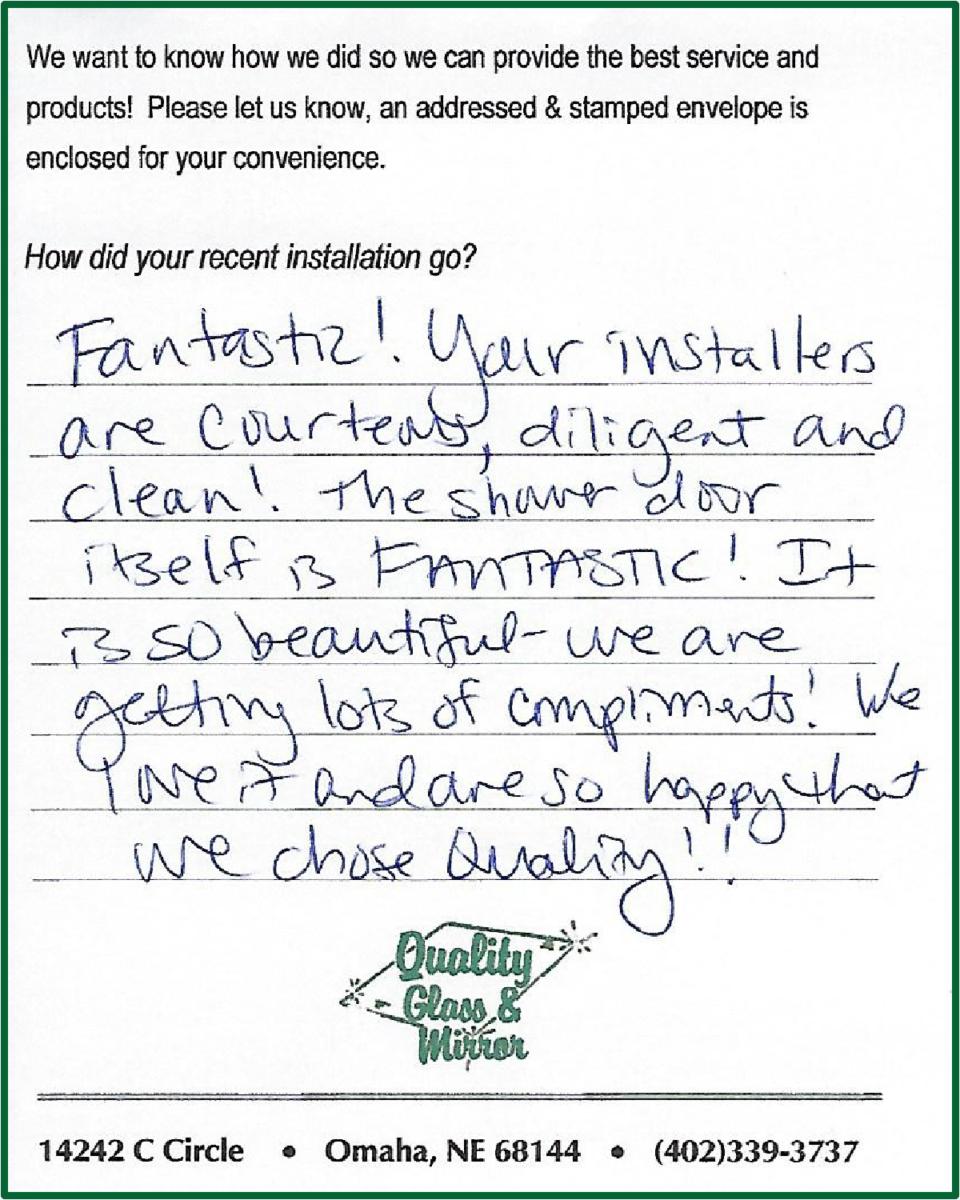 We want to know how we did so we can provide the best service and
products! Please let us know, an addressed & stamped envelope is
enclosed for your convenience.
How did your recent installation go?
Fantastic! Your installers
are courteous, diligent and
clean! The shower door
itself is FANTASTIC! It
is so beautiful - we are
getting lots of compliments! We
love it and are so happy that
we chose Quality!!
Quality
Glass &
Mirror
14242 C Circle • Omaha, NE 68144 • (402)339-3737